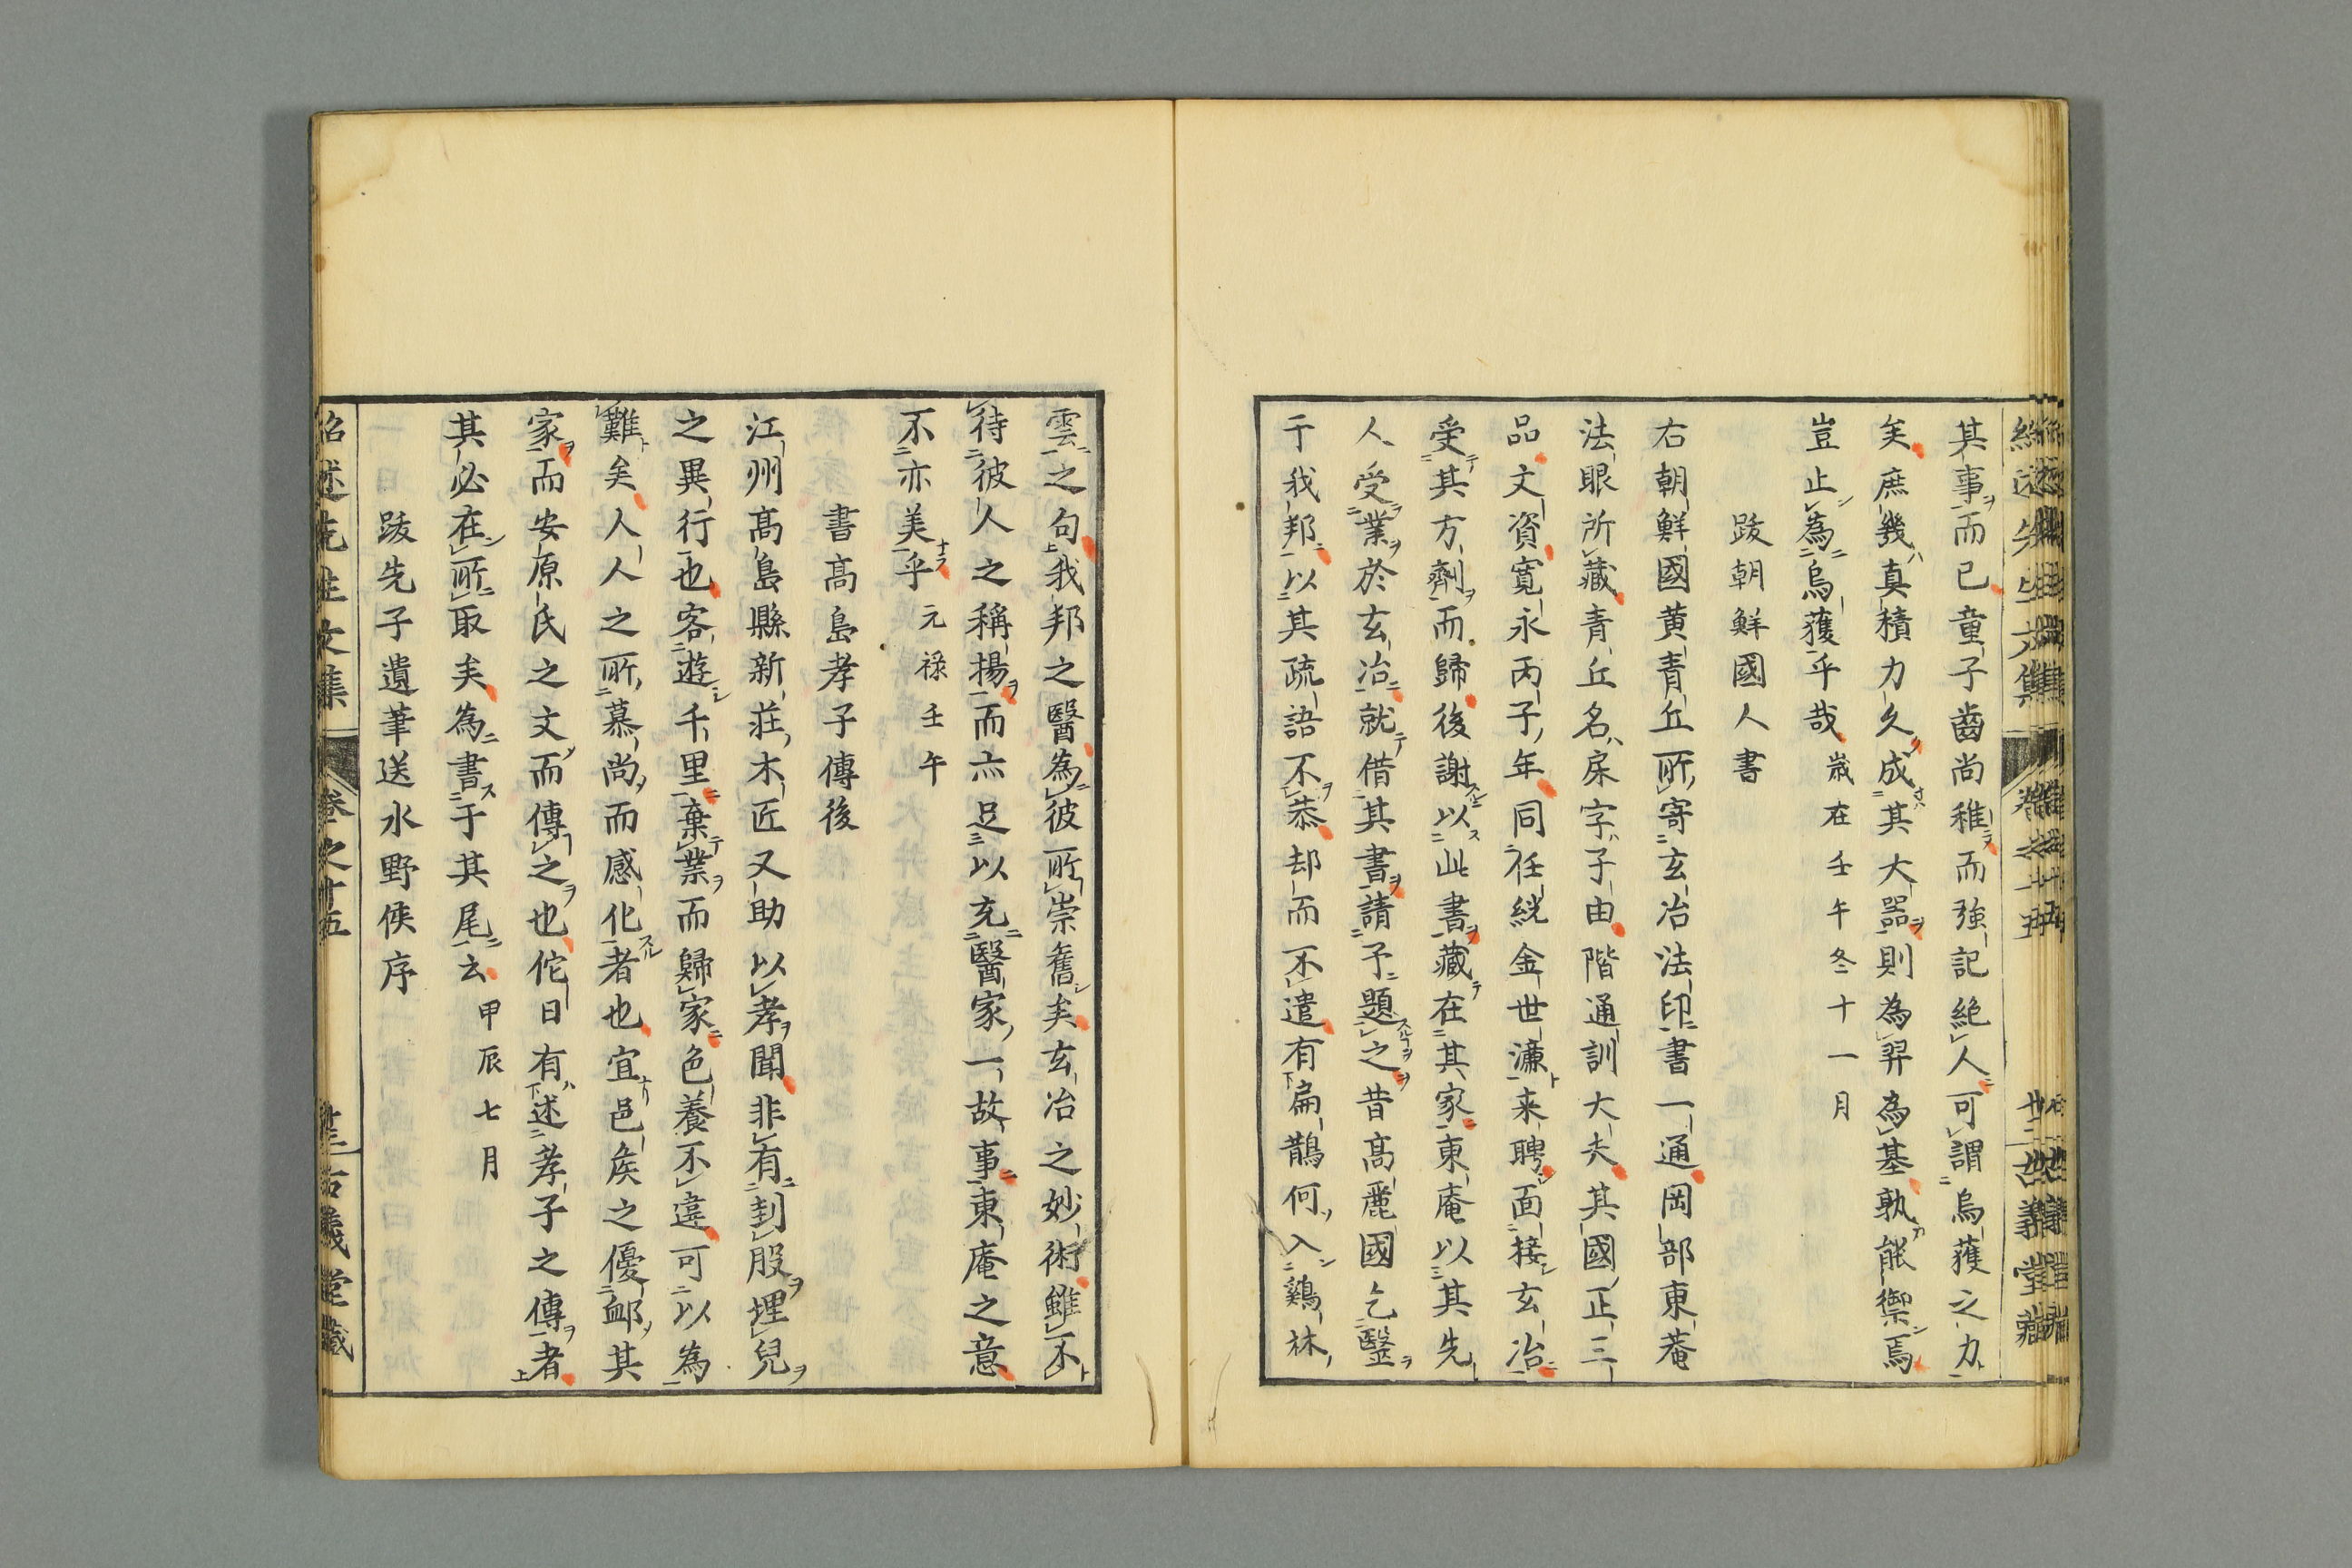 其事而已童子齒尚稚而強記絶人可謂烏獲之力
矣庶幾真積力久成其大器則為羿為基孰能禦焉
豈止為烏獲乎哉歳在壬午冬十一月
跋朝鮮國人書
右朝鮮國黄青丘所寄玄冶法印書一通岡部東菴
法眼所藏青丘名㦿字子由階通訓大夫其國正三
品文資寛永丙子年同任絖金世濂来聘面接玄冶
受其方劑而歸後謝以此書藏在其家東庵以其先
人受業於玄冶就借其書請予題之昔髙麗國乞毉
于我邦以其疏語不恭却而不遣有扁鵲何入鷄林
雲之句我邦之醫為彼所崇舊矣玄冶之妙術雖不
待彼人之稱揚而亦足以充醫家一故事東庵之意
不亦美乎元祿壬午
書髙島孝子傳後
江州髙島縣新莊木匠又助以孝聞非有刲股埋兒
之異行也客遊千里棄業而歸家色養不違可以為
難矣人人之所慕尚而感化者也宜邑矦之優䘏其
家而安原氏之文而傳之也佗日有述孝子之傳者
其必在所取矣為書于其尾云甲辰七月
跋先子遺筆送水野侯序
紹述先生文集 卷之十五 廿三 古義堂藏